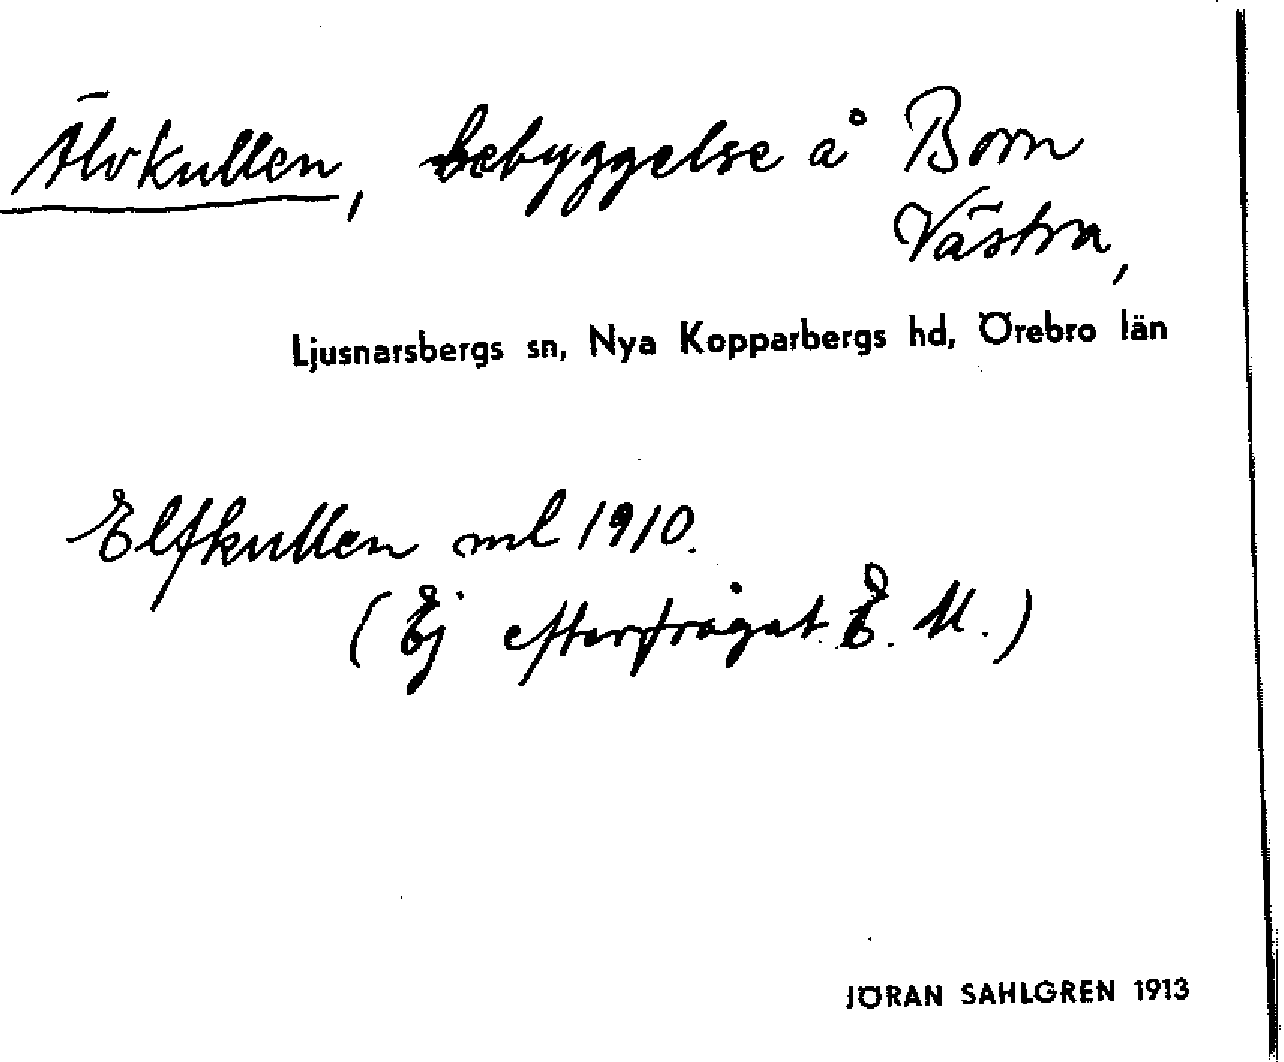 Älvkullen, bebyggelse å Born
Västra,
Ljusnarsbergs sn, Nya Kopparbergs hd, Örebro län
Elfkullen ml 1910.
(Ej efterfrågat. E. M.)
JÖRAN SAHLGREN 1913